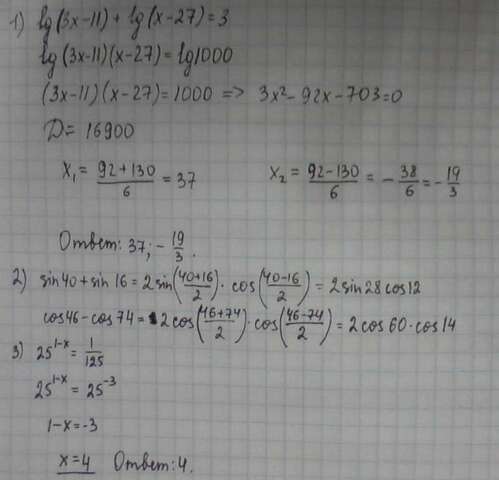 1) lg(3x-11) + lg(x-27) = 3
lg(3x-11)(x-27) = lg1000
(3x-11)(x-27) = 1000 => 3x² - 92x - 703 = 0
D = 16900
x₁ = (92+130)/6 = 37 x₂ = (92-130)/6 = -38/6 = -19/3
Ответ: 37; -19/3.
2) sin40 + sin16 = 2sin((40+16)/2) · cos((40-16)/2) = 2sin28cos12
cos46 - cos74 = 2cos((46+74)/2) · cos((46-74)/2) = 2cos60·cos14
3) 25^(1-x) = 1/125
25^(1-x) = 25^(-3)
1-x = -3
x = 4 Ответ: 4.